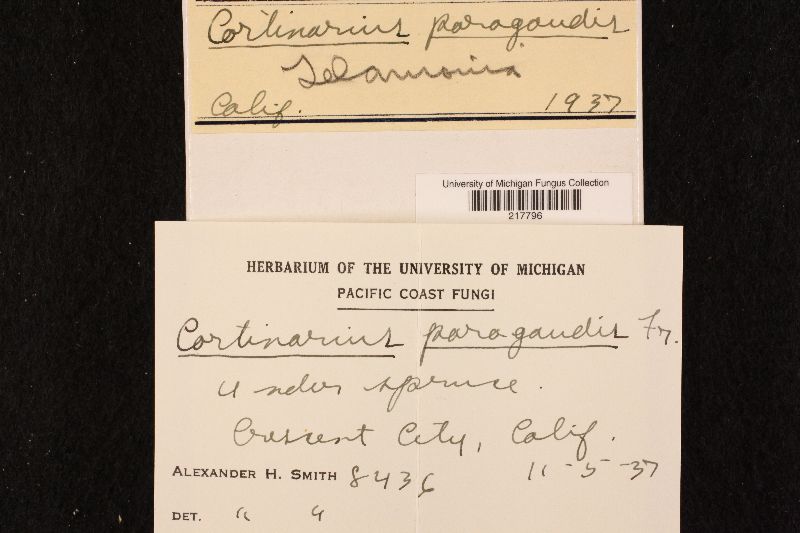 Cortinarius paragaudis
Telamonia
Calif. 1937
University of Michigan Fungus Collection
217796
HERBARIUM OF THE UNIVERSITY OF MICHIGAN
PACIFIC COAST FUNGI
Cortinarius paragaudis Fr.
Under spruce.
Crescent City, Calif.
ALEXANDER H. SMITH 8436 11-5-37
DET. " "